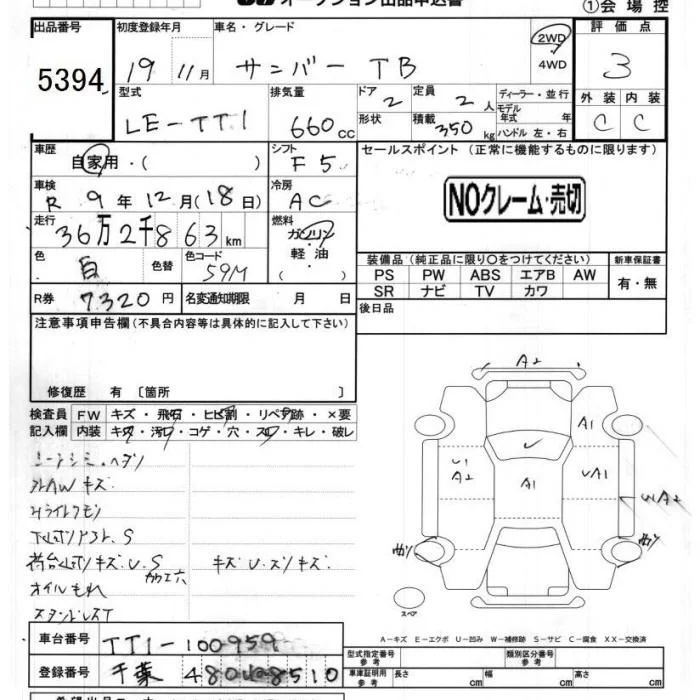 オークション出品申込書
①会場控
出品番号 5394
初度登録年月 19 11月
車名・グレード サンバー TB
2WD
4WD
評価点 3
型式 LE-TT1
排気量 660cc
ドア 2
形状
定員 2人
積載 350kg
ディーラー・並行
モデル年式 年
ハンドル 左・右
外装 C
内装 C
車歴 自家用・( )
シフト F5
セールスポイント (正常に機能するものに限ります)
NOクレーム・売切
車検 R 9年12月(18日)
冷房 AC
走行 36万2千863km
燃料 ガソリン
軽油
( )
色 白
色替
色コード 59M
装備品 (純正品に限り○をつけてください)
新車保証書
PS PW ABS エアB AW
SR ナビ TV カワ
有・無
R券 7320円
名変通知期限 月 日
後日品
注意事項申告欄 (不具合内容等は具体的に記入して下さい)
修復歴 有 〔箇所 〕
検査員記入欄
FW キズ・飛石・ヒビ割・リペア跡・×要
内装 キズ・汚レ・コゲ・穴・スレ・キレ・破レ
オイルもれ
A2
A1
U1
A2
A1
UA1
スペア
A-キズ E-エクボ U-凹み W-補修跡 S-サビ C-腐食 XX-交換済
車台番号 TT1-100959
登録番号 千葉 480 8510
型式指定番号 参考
類別区分番号 参考
車庫証明用 参考
長さ cm
幅 cm
高さ cm